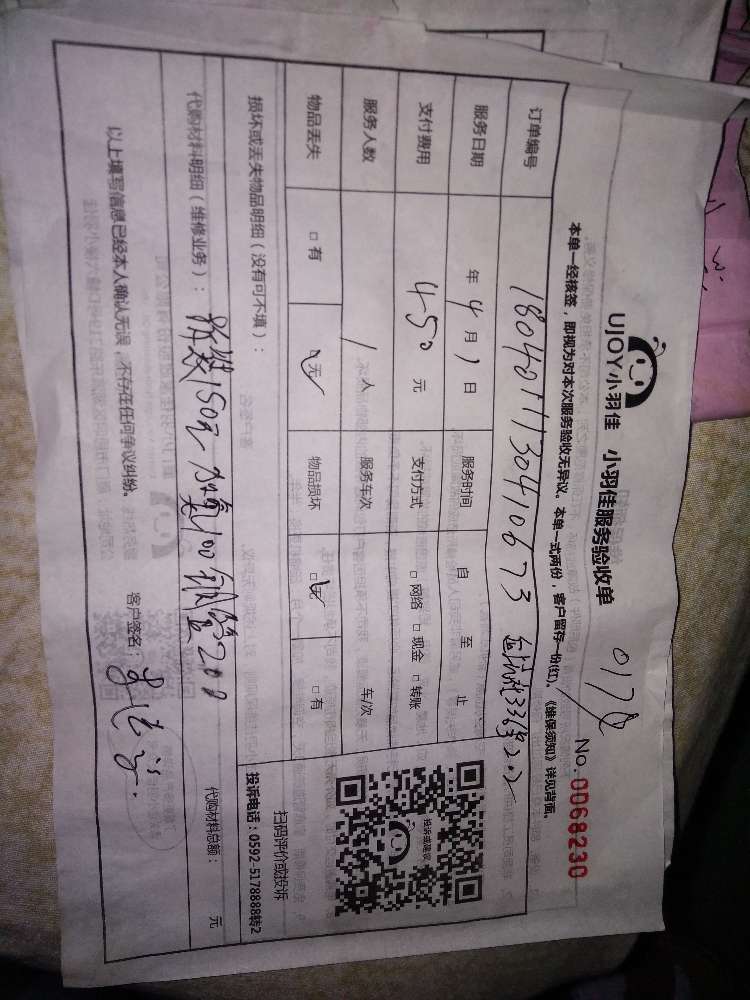 UJOY小羽佳 小羽佳服务验收单
No.0068230
本单一经核签，即视为对本次服务验收无异议。本单一式两份，客户留存一份(红)。《维保须知》详见背面。
订单编号 1804011130410673
服务日期 年 4 月 1 日 服务时间 自 至 止
支付费用 450 元 支付方式 □ 网络 □ 现金 □ 转账
服务人数 1 人 服务车次 车/次
物品丢失 □ 有 □ 无 物品损坏 □ 无 □ 有
投诉或建议
扫码评价或投诉
投诉电话：0592-5178888转2
损坏或丢失物品明细（没有可不填）：
代购材料明细（维修业务）： 150元 加氟100 200
代购材料总额： 元
以上填写信息已经本人确认无误，不存在任何争议纠纷。 客户签名：